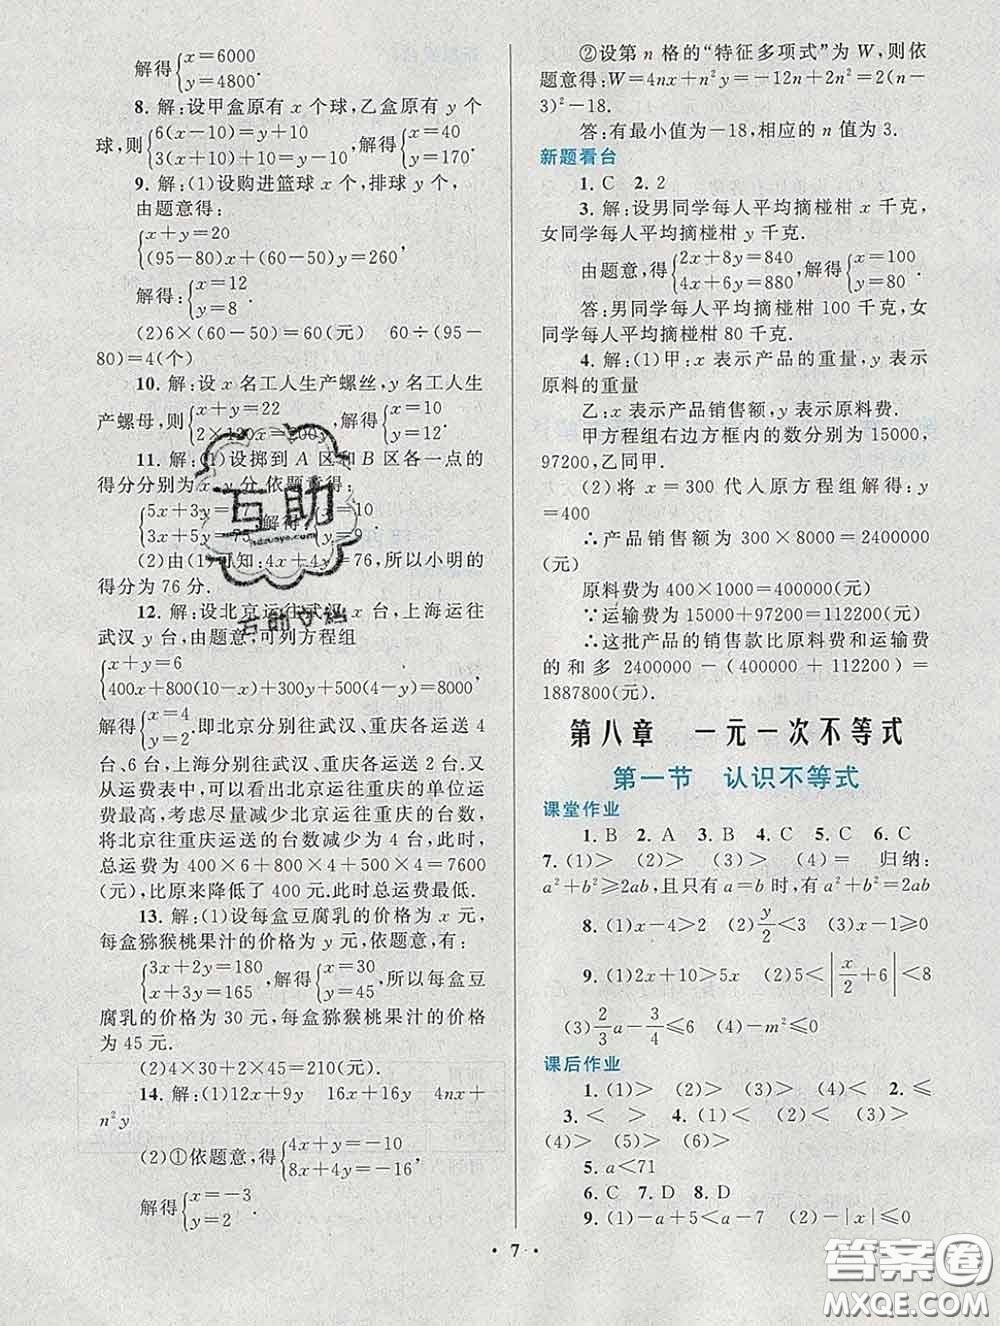 解得{x=6000
y=4800.
8. 解:设甲盒原有 x 个球,乙盒原有 y 个
球,则{6(x−10)=y+10
3(x+10)+10=y−10,解得{x=40
y=170.
9. 解:(1)设购进篮球 x 个,排球 y 个,
由题意得:
{x+y=20
(95−80)x+(60−50)y=260,
解得:{x=12
y=8.
(2)6×(60−50)=60(元) 60÷(95−
80)=4(个)
10. 解:设 x 名工人生产螺丝,y 名工人生
产螺母,则{x+y=22
2×120x=200y,解得{x=10
y=12.
11. 解:(1)设掷到 A 区和 B 区各一点的
得分分别为 x,y 分,依题意得:
{5x+3y=
3x+5y=75,解得{x=10
y=9.
(2)由(1)可知:4x+4y=76,所以小明的
得分为 76 分.
12. 解:设北京运往武汉 x 台,上海运往
武汉 y 台,由题意,可列方程组
{x+y=6
400x+800(10−x)+300y+500(4−y)=8000,
解得{x=4
y=2.即北京分别往武汉、重庆各运送 4
台、6 台,上海分别往武汉、重庆各运送 2 台.又
从运费表中,可以看出北京运往重庆的单位运
费最高,考虑尽量减少北京运往重庆的台数,
将北京往重庆运送的台数减少为 4 台,此时,
总运费为 400×6+800×4+500×4=7600
(元),比原来降低了 400 元.此时总运费最低.
13. 解:(1)设每盒豆腐乳的价格为 x 元,
每盒猕猴桃果汁的价格为 y 元,依题意,有:
{3x+2y=180
x+3y=165,解得{x=30
y=45,所以每盒豆
腐乳的价格为 30 元,每盒猕猴桃果汁的价格
为 45 元.
(2)4×30+2×45=210(元).
14. 解:(1)12x+9y 16x+16y 4nx+
n²y
(2)①依题意,得{4x+y=−10
8x+4y=−16,
解得{x=−3
y=2.
②设第 n 格的“特征多项式”为 W,则依
题意得:W=4nx+n²y=−12n+2n²=2(n−
3)²−18.
答:有最小值为−18,相应的 n 值为 3.
新题看台
1. C 2. 2
3. 解:设男同学每人平均摘椪柑 x 千克,
女同学每人平均摘椪柑 y 千克.
由题意,得{2x+8y=840
4x+6y=880,解得{x=100
y=80.
答:男同学每人平均摘椪柑 100 千克,女
同学每人平均摘椪柑 80 千克.
4. 解:(1)甲:x 表示产品的重量,y 表示
原料的重量
乙:x 表示产品销售额,y 表示原料费.
甲方程组右边方框内的数分别为 15000,
97200,乙同甲.
(2)将 x=300 代入原方程组解得:y
=400
∴产品销售额为 300×8000=2400000
(元)
原料费为 400×1000=400000(元)
∵运输费为 15000+97200=112200(元)
∴这批产品的销售款比原料费和运输费
的和多 2400000−(400000+112200)=
1887800(元).
第八章 一元一次不等式
第一节 认识不等式
课堂作业
1. B 2. A 3. B 4. C 5. C 6. C
7. (1)> (2)> (3)> (4)= 归纳:
a²+b²≥2ab,且只有 a=b 时,有 a²+b²=2ab
8. (1)x−4>2 (2)y/2<3 (3)x−1≥0
9. (1)2x+10>5x (2)5<|x/2+6|<8
(3)2/3a−3/4≤6 (4)−m²≤0
课后作业
1. (1)> (2)> (3)> (4)< 2. ≤
3. < > 4. (1)< (2)< (3)>
(4)> (5)> (6)>
5. a<71
6. C 7. D 8. D
9. (1)−a+5<a−7 (2)−|x|≤0
• 7 •
互助
hdzuoye.com
互助文档
答案圈
MXQE.COM